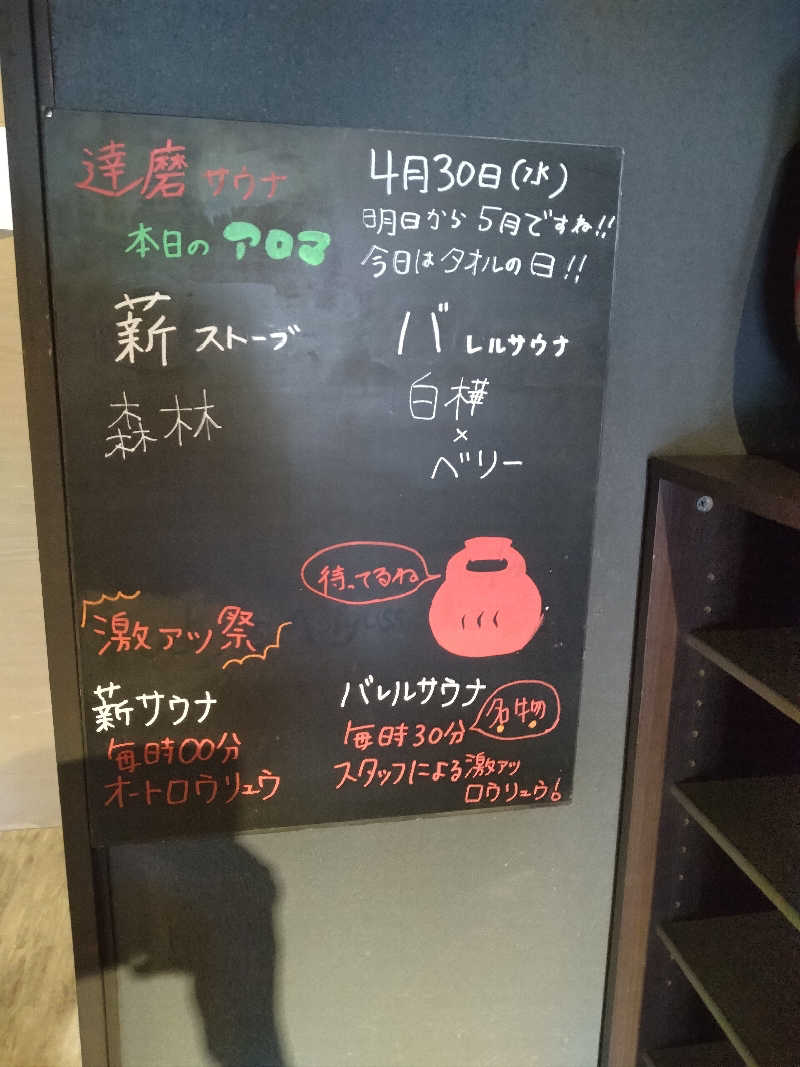 達磨サウナ
本日のアロマ
4月30日(水)
明日から5月ですね!!
今日はタオルの日!!
薪ストーブ
森林
バレルサウナ
白樺
×
ベリー
待ってるね
激アツ祭
薪サウナ
毎時00分
オートロウリュウ
バレルサウナ
毎時30分
名物
スタッフによる激アツ
ロウリュウ!